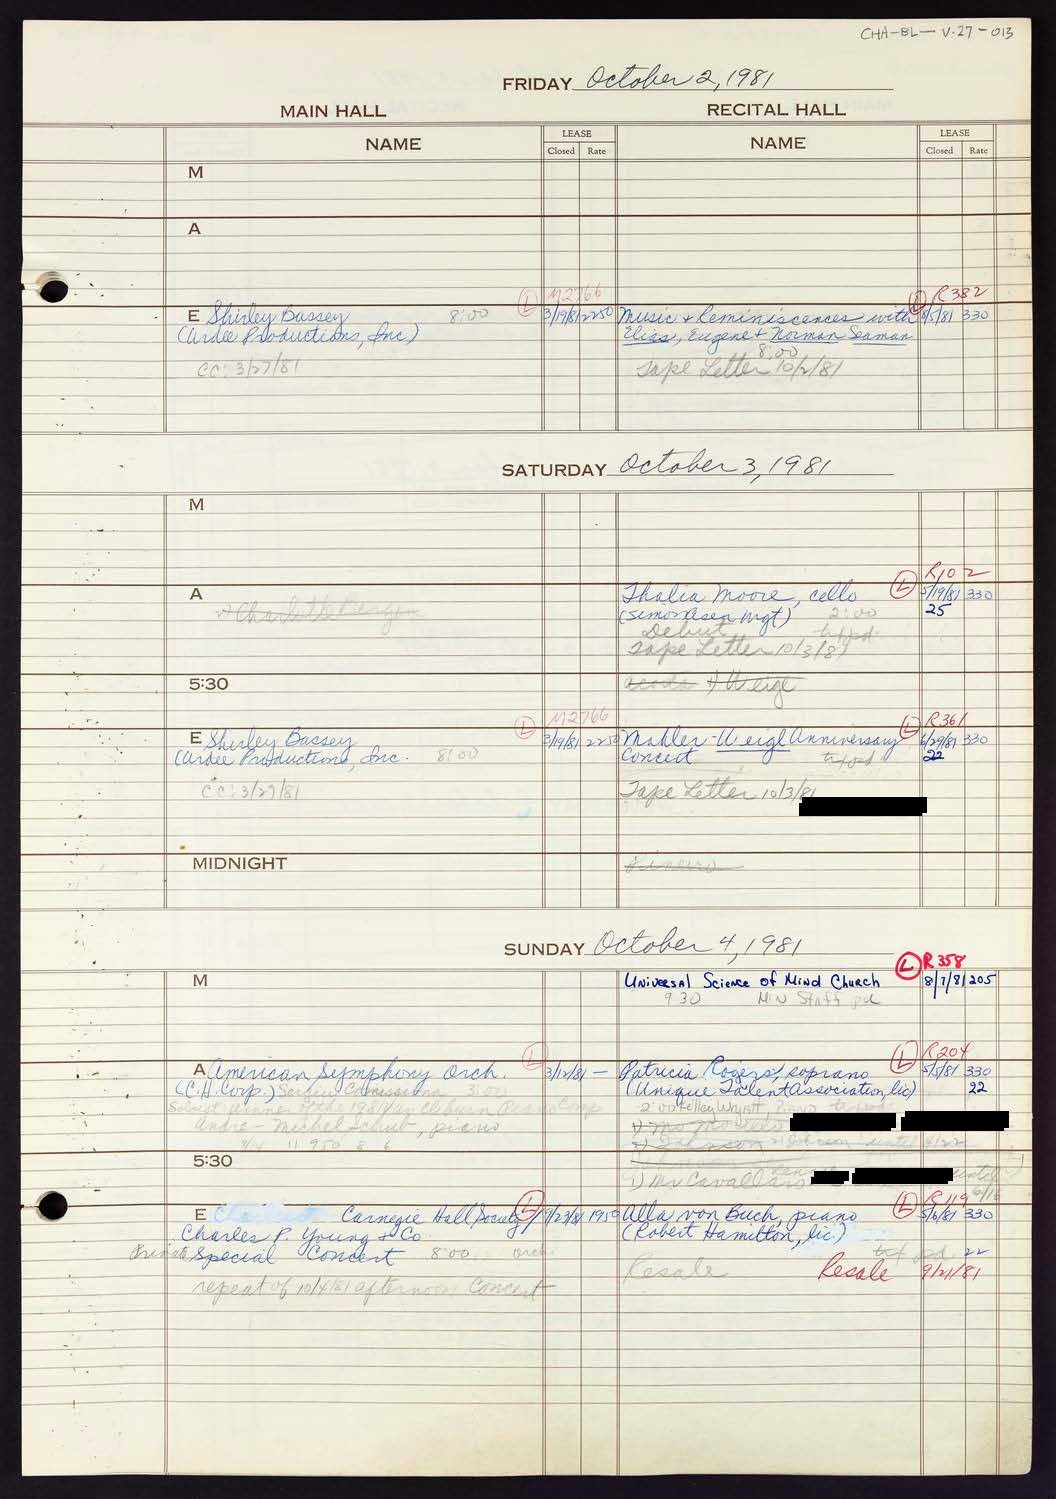 CHA-BL-V.27-013
FRIDAY October 2, 1981
MAIN HALL
RECITAL HALL
NAME
LEASE
Closed Rate
NAME
LEASE
Closed Rate
M
A
M2766
L
E Shirley Bassey 8:00 3/19/81 2250
(Ardee Productions, Inc)
CC: 3/27/81
R382
L
Music + Reminiscences with 8/5/81 330
Elias, Eugene + Norman Seaman
8:00
Tape Letter 10/2/81
SATURDAY October 3, 1981
M
A
Charlotte Bergen
R102
L
Thalia Moore, cello 5/19/81 330
(Simonsen Mgt) 2:00 25
Debut
Tape Letter 10/3/81
5:30
Weigl
M2766
L
E Shirley Bassey 3/19/81 2250
(Ardee Productions, Inc. 8:00
CC: 3/27/81
R361
L
Mahler-Weigl Anniversary 6/29/81 330
Concert 22
Tape Letter 10/3/81
MIDNIGHT
SUNDAY October 4, 1981
M
L R358
Universal Science of Mind Church 8/7/81 205
9 30 Min Staff pd
L
A American Symphony Orch. 3/12/81 —
(C.H. Corp.) Sergiu Comissiona 3:00
winner of the 1981 Van Cliburn Piano Comp
André-Michel Schub, piano
R204
L
Patricia Rogers, soprano 5/5/81 330
(Unique Talent Association, lic) 22
2:00 Kelley Wyatt, Piano
Johnson until 4/22
5:30
1) Mr Cavallaro until
6/16
L
E Carnegie Hall Society 9/23/81 1950
Charles P. Young & Co.
Private Special Concert 8:00 orch
repeat of 10/4/81 afternoon Concert
R119
L
Alla von Buch, piano 5/6/81 330
(Robert Hamilton, lic.)
pd. 22
Resale Resale 9/21/81